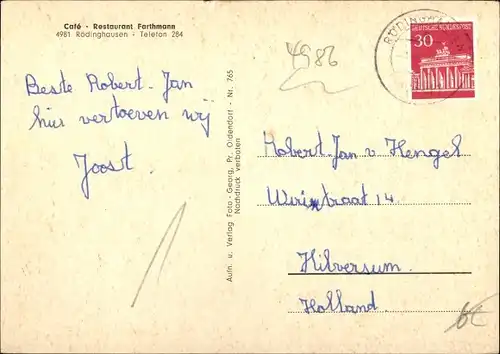 Café · Restaurant Farthmann
4981 Rödinghausen · Telefon 284
Beste Robert-Jan
hier vertoeven wij
Joost.
4986
Aufn. u. Verlag Foto-Georg, Pr. Oldendorf - Nr. 765
Nachdruck verboten
DEUTSCHE BUNDESPOST
30
Robert-Jan v Hengel
14
Hilversum.
Holland.